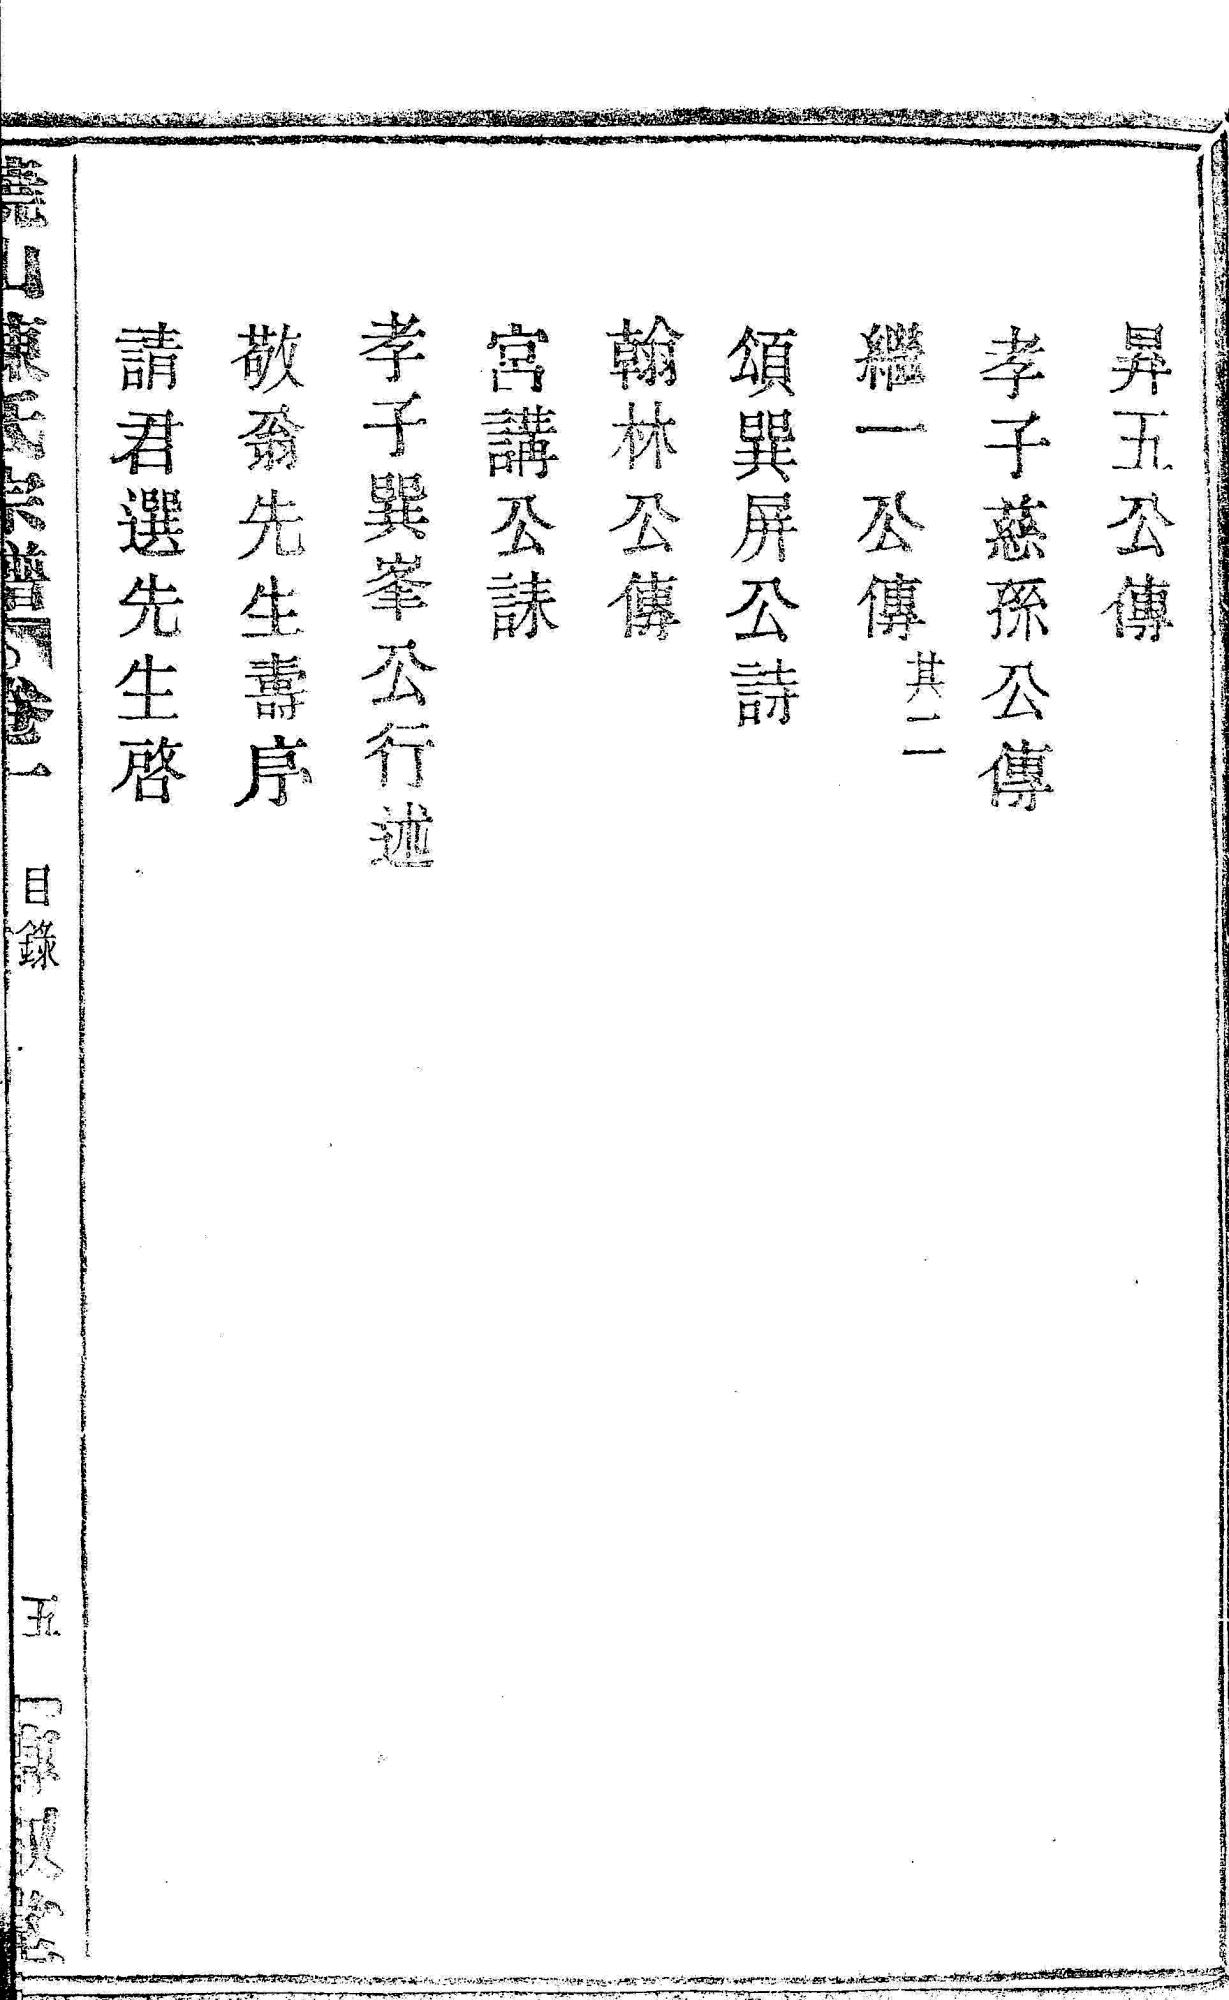 昇五公傳
孝子慈孫公傳
繼一公傳 其二
頌巽屏公詩
翰林公傳
宮講公誄
孝子巽峯公行述
敬翁先生壽序
請君選先生啓
山陳氏宗譜 卷一 目錄 五